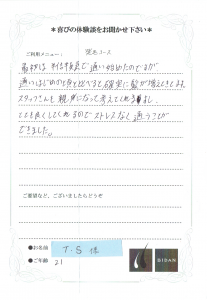 ＊喜びの体験談をお聞かせ下さい＊
ご利用メニュー： 発毛コース
最初は半信半疑で通い始めたのですが
通いはじめの時と比べると確実に髪が増えてきてます。
スタッフさんも親身になって考えてくれますし、
とても良くしてくれるのでストレスなく通うことが
できました。
ご要望など、ございましたらどうぞ
●お名前 T.S 様
●ご年齢 21
BIDAN